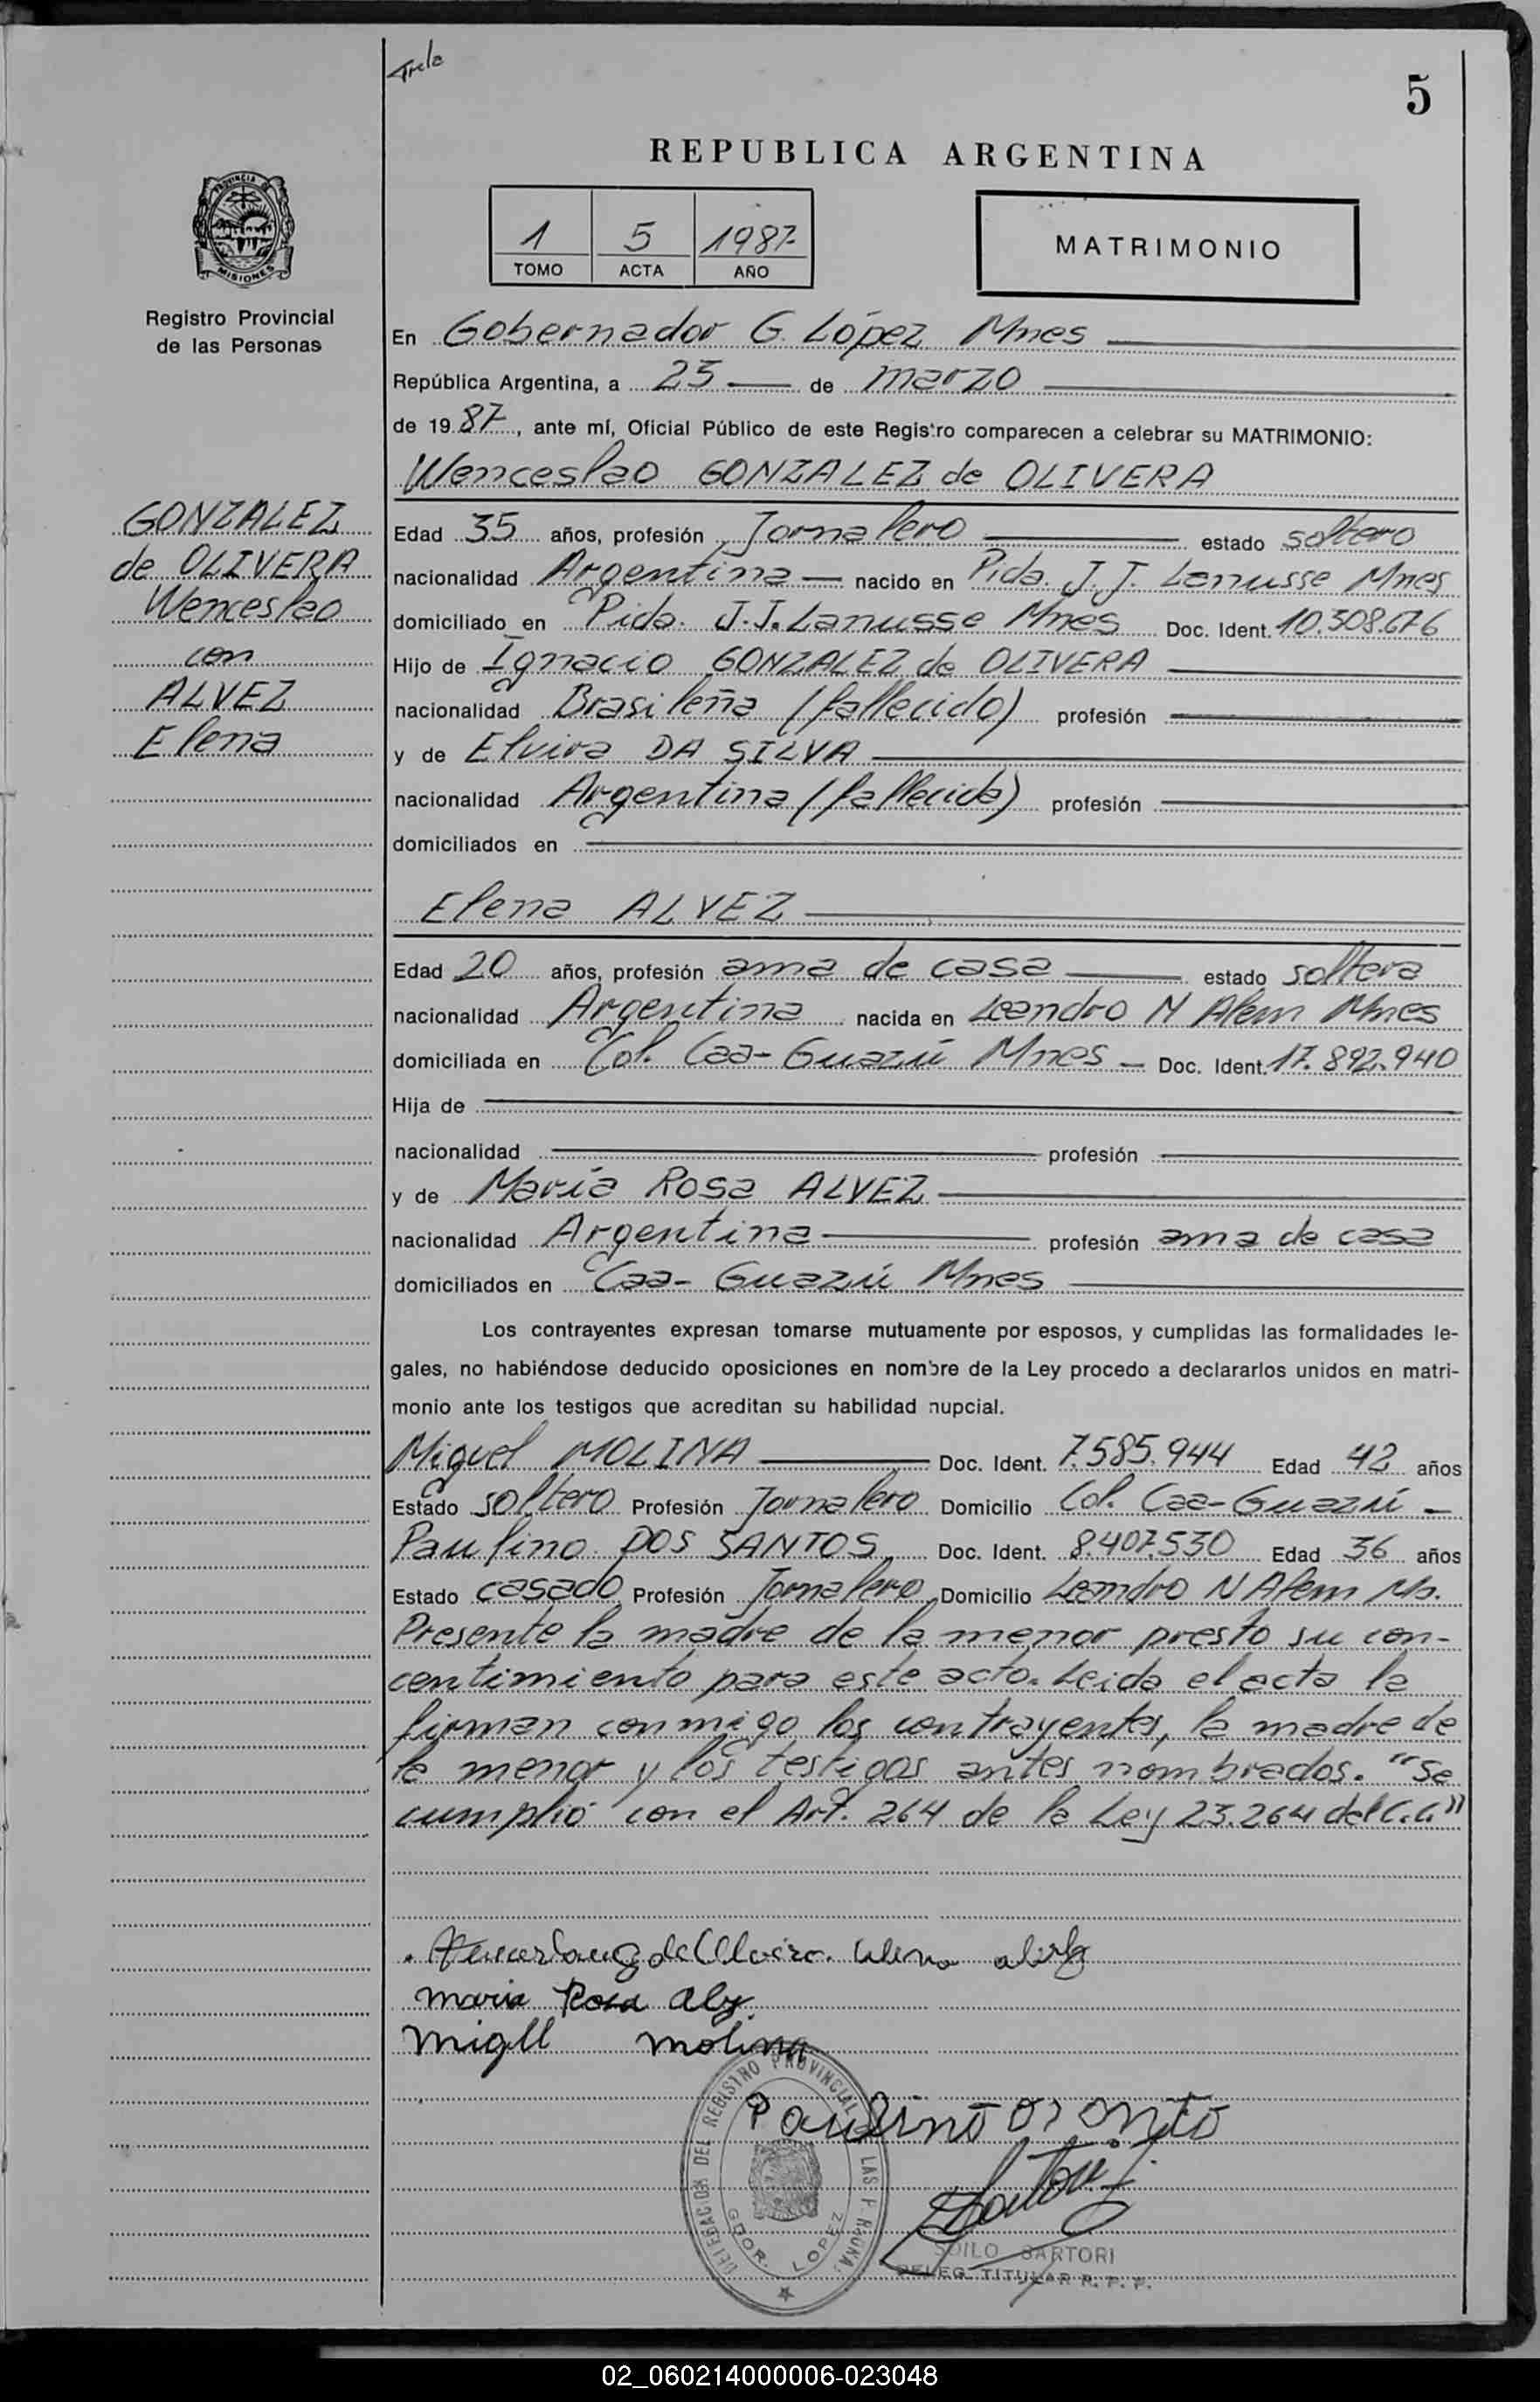 5
REPUBLICA ARGENTINA
1 5 1987
TOMO ACTA AÑO
MATRIMONIO
PROVINCIA DE
MISIONES
Registro Provincial
de las Personas
GONZALEZ
de OLIVERA
Wenceslao
con
ALVEZ
Elena
En Gobernador G. López Mnes
República Argentina, a 25 de marzo
de 1987, ante mí, Oficial Público de este Registro comparecen a celebrar su MATRIMONIO:
Wenceslao GONZALEZ de OLIVERA
Edad 35 años, profesión Jornalero estado soltero
nacionalidad Argentina nacido en Pida. J. J. Lanusse Mnes
domiciliado en Pida. J. J. Lanusse Mnes Doc. Ident. 10.308.676
Hijo de Ignacio GONZALEZ de OLIVERA
nacionalidad Brasileña (fallecido) profesión
y de Elvira DA SILVA
nacionalidad Argentina (fallecida) profesión
domiciliados en
Elena ALVEZ
Edad 20 años, profesión ama de casa estado soltera
nacionalidad Argentina nacida en Leandro N Alem Mnes
domiciliada en Col. Caa-Guazú Mnes - Doc. Ident. 17.892.940
Hija de
nacionalidad profesión
y de María Rosa ALVEZ
nacionalidad Argentina profesión ama de casa
domiciliados en Caa-Guazú Mnes
Los contrayentes expresan tomarse mutuamente por esposos, y cumplidas las formalidades le-
gales, no habiéndose deducido oposiciones en nombre de la Ley procedo a declararlos unidos en matri-
monio ante los testigos que acreditan su habilidad nupcial.
Miguel MOLINA Doc. Ident. 7.585.944 Edad 42 años
Estado soltero Profesión Jornalero Domicilio Col. Caa-Guazú -
Paulino DOS SANTOS Doc. Ident. 8.407.530 Edad 36 años
Estado casado Profesión Jornalero Domicilio Leandro N Alem Ms.
Presente la madre de la menor presto su con-
centimiento para este acto. Leida el acta la
firman conmigo los contrayentes, la madre de
la menor y los testigos antes nombrados. "Se
cumplió con el Art. 264 de la Ley 23.264 del C.C."
maria Rosa
migll molina
DELEGACION DEL REGISTRO PROVINCIAL LAS PERSONAS
GDOR. LOPEZ
Paulino
SOILO SARTORI
DELEG. TITULAR R. P. P.
02_060214000006-023048